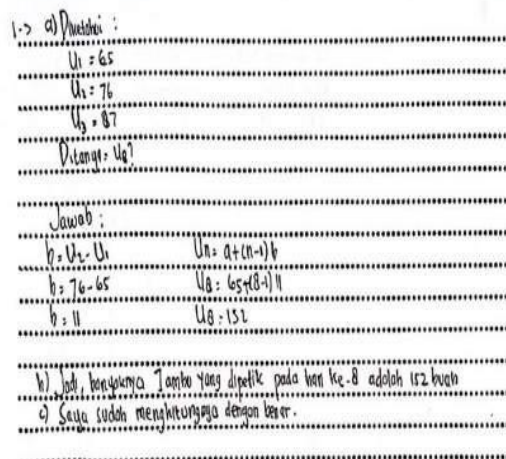 1.> a) Diketahui :
U1 = 65
U2 = 76
U3 = 87
Ditanya = U8?
Jawab :
b = U2 - U1 Un = a+(n-1)b
b = 76-65 U8 = 65+(8-1)11
b = 11 U8 = 152
b) Jadi, banyaknya Jambu yang dipetik pada hari ke-8 adalah 152 buah
c) Saya sudah menghitungnya dengan benar.